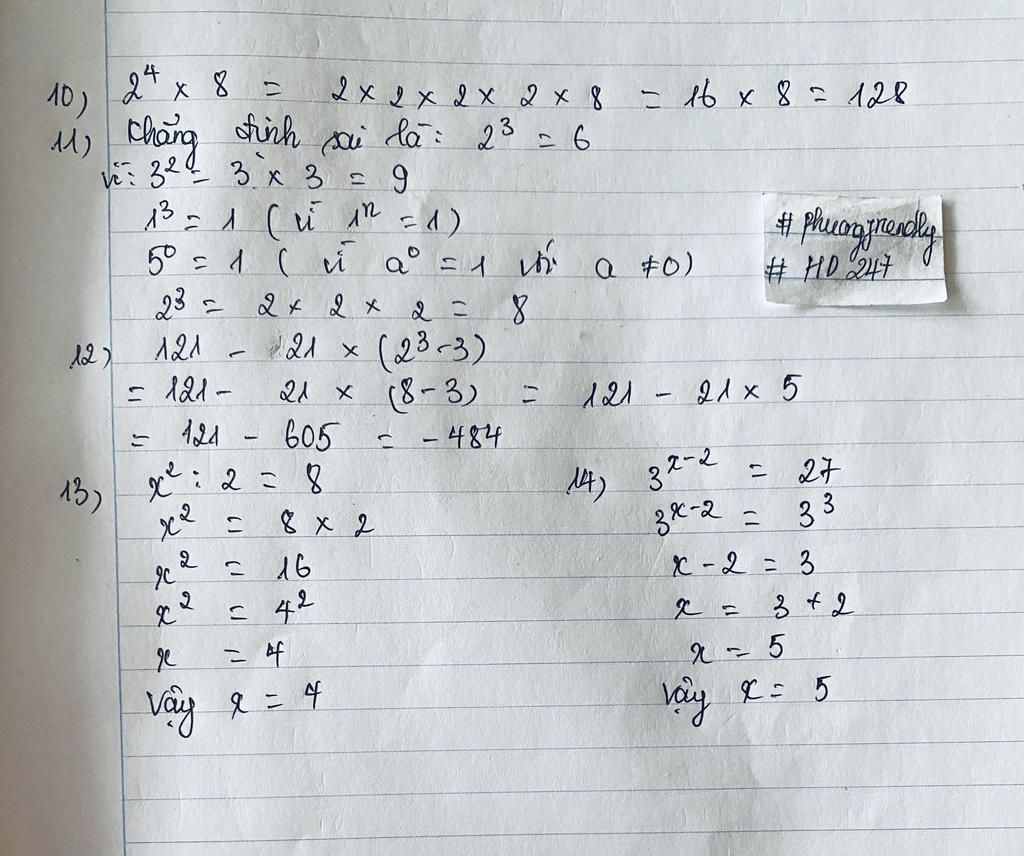 10) 2⁴ × 8 = 2 × 2 × 2 × 2 × 8 = 16 × 8 = 128
11) Khẳng định sai là: 2³ = 6
vì: 3² = 3 × 3 = 9
1³ = 1 ( vì 1ⁿ = 1)
5⁰ = 1 ( vì a⁰ = 1 với a ≠ 0)
2³ = 2 × 2 × 2 = 8
# phuongfriendly
# HD 247
12) 121 - 121 × (2³ - 3)
= 121 - 121 × (8 - 3) = 121 - 121 × 5
= 121 - 605 = - 484
13) x² : 2 = 8
x² = 8 × 2
x² = 16
x² = 4²
x = 4
Vậy x = 4
14) 3ˣ⁻² = 27
3ˣ⁻² = 3³
x - 2 = 3
x = 3 + 2
x = 5
Vậy x = 5